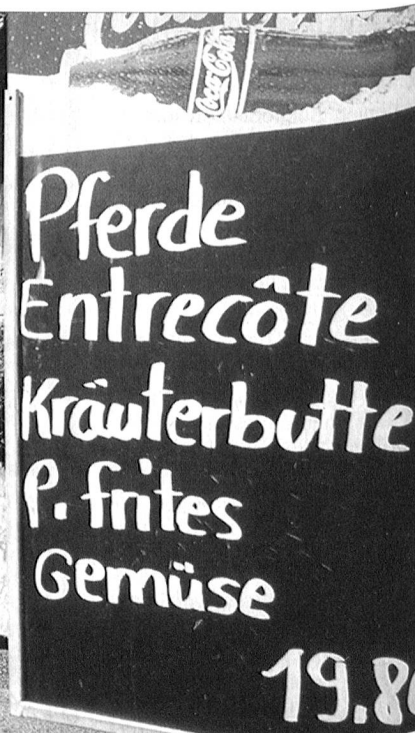 Coca-Cola
Pferde
Entrecôte
Kräuterbutte
P. frites
Gemüse
19.8